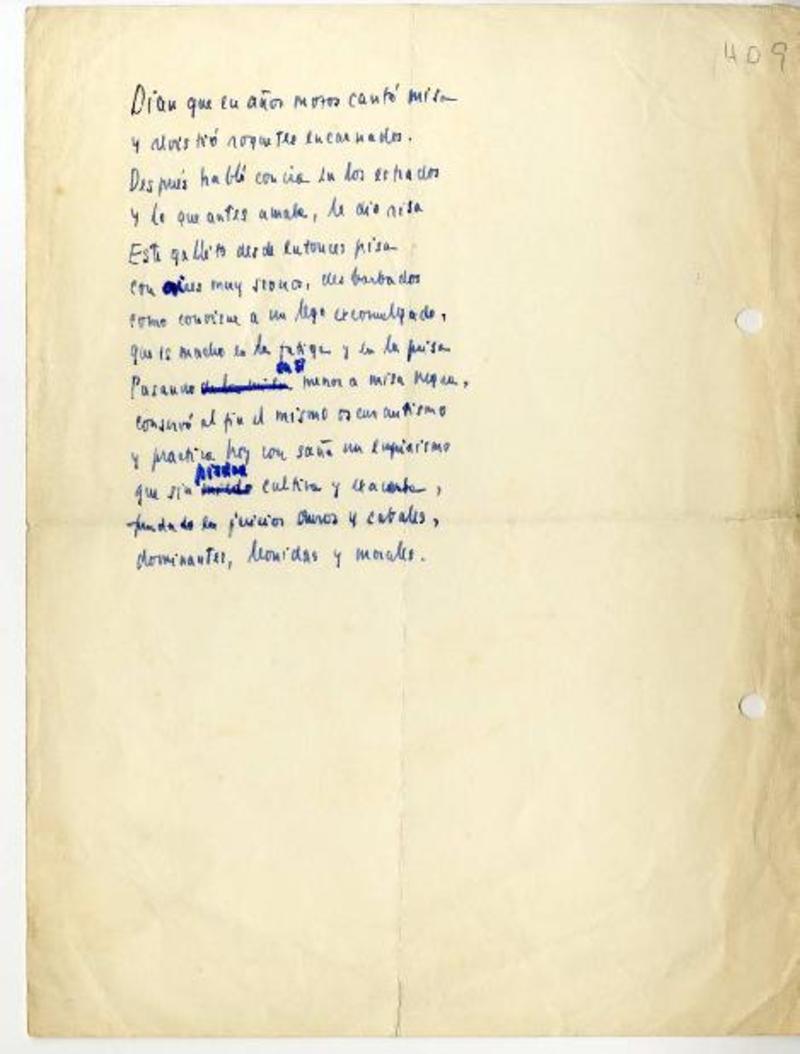 409
Dían que en años moros cantó misa
y revistió roquetes encarnados.
Después habló con cia en los estrados
y lo que antes amaba, le dio risa
Este gallito desde entonces pisa
con aires muy desbarbados
como conviene a un lego excomulgado,
que es macho en la fatiga y en la prisa
Pasando casi menor a misa negra,
conservó al fin el mismo oscurantismo
y practica hoy con saña un
que sin piedra cultiva y
fundado en juicios duros y cabales,
dominantes, leonidas y morales.